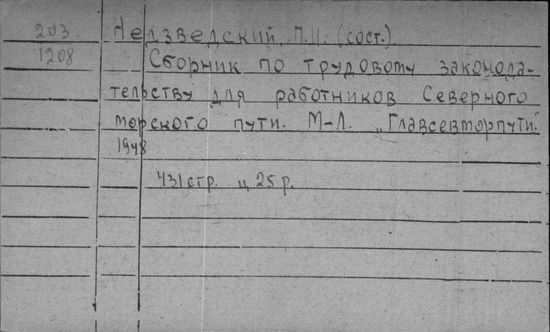 203. Недзведский, П.И. (сост.)
1208 Сборник по трудовому законода-
тельству для работников Северного
морского пути. М-Л. „Главсевморпути."
1948
431 стр. ц 25 р.